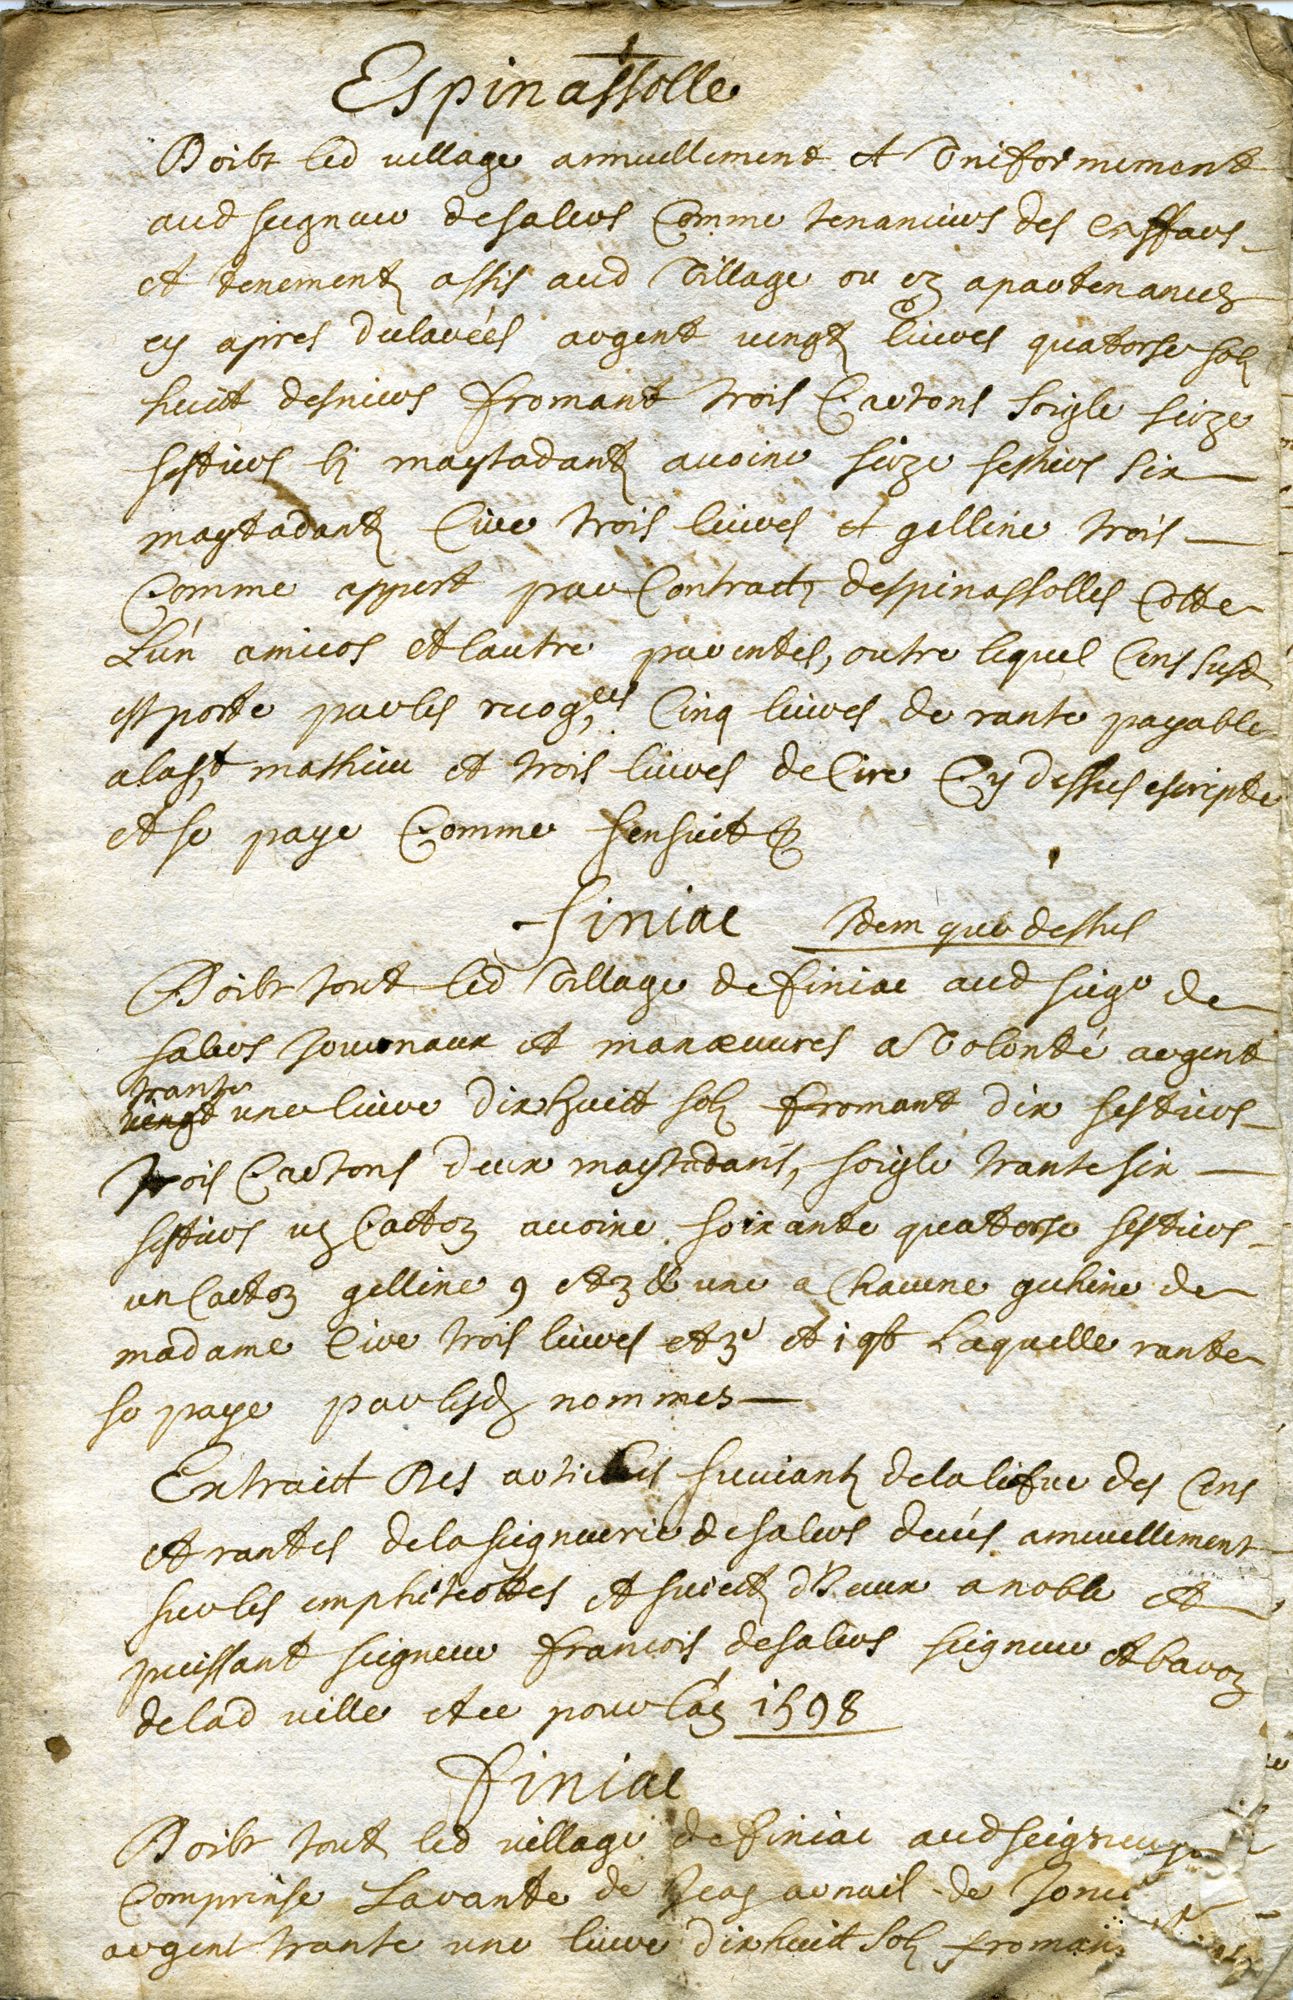 Espinassolle
Doibt led village annuellement et Uniformement
aud seigneur desalers Comme tenanciers des
et tenement assis aud Village ou ez apartenances
cy apres declarées argent vingt livres quatorse sols
huict desniers fromant trois Cartons soigle seize
sestiers maytadant avoine seize sestiers six
maytadant Cire trois livres et gelline trois
Comme appert par Contract despinassolles Cotte
Lun amicos et lautre parentes, outre lequel Cens susd
est porte par les recog.ces Cinq livres de rante payable
a la st mathieu et trois livres de Cire Cy dessus escripte
et se paye Comme sensuit
finiac Idem que dessus
Doibt tout led Village de finiac aud seigr de
salers Journaux et manœuvres a Volonté argent
trante
vingt une livre dix huict sols fromant dix sestiers
trois Cartons deux maytadans, soigle trante six
sestiers un Carton avoine soixante quatorse sestiers
un Carton gelline 9 et une a Chacune de
madame Cire trois livres et et Laquelle rante
se paye par lesd nommes
Extraict Des articles suiviant de la lifve des Cens
et rantes de la seigneurie desalers deues annuellement
sur les emphiteottes et d'Yceux a noble et
puissant seigneur francois desalers seigneur et baron
delad ville etce pour lan 1598
finiac
Doibt tout led village de finiac aud seigneur
Comprinse La rante de de
argent trante une livre dix huict sols froman